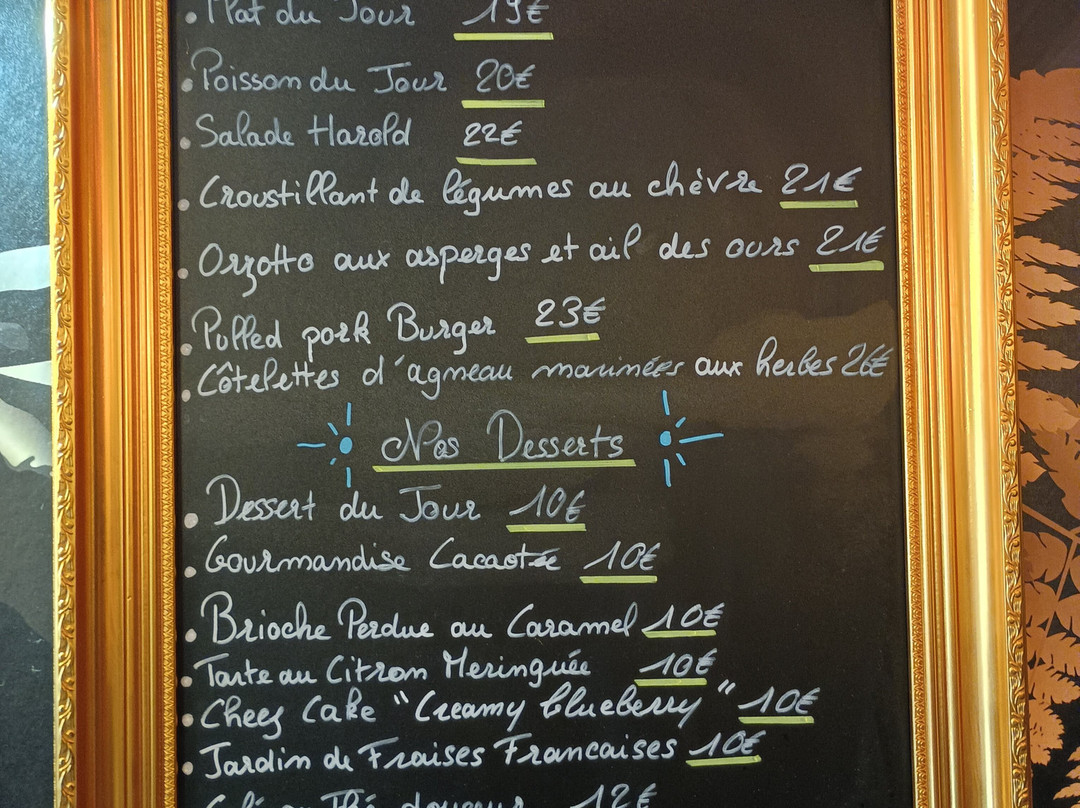 . Plat du Jour 19€
. Poisson du Jour 20€
. Salade Harold 22€
. Croustillant de légumes au chèvre 21€
. Orzotto aux asperges et ail des ours 21€
. Pulled pork Burger 23€
. Côtelettes d'agneau marinées aux herbes 26€
Nos Desserts
. Dessert du Jour 10€
. Gourmandise Cacaotée 10€
. Brioche Perdue au Caramel 10€
. Tarte au Citron Meringuée 10€
. Cheez Cake "Creamy blueberry" 10€
. Jardin de Fraises Francaises 10€
Café ou Thé douceur 12€